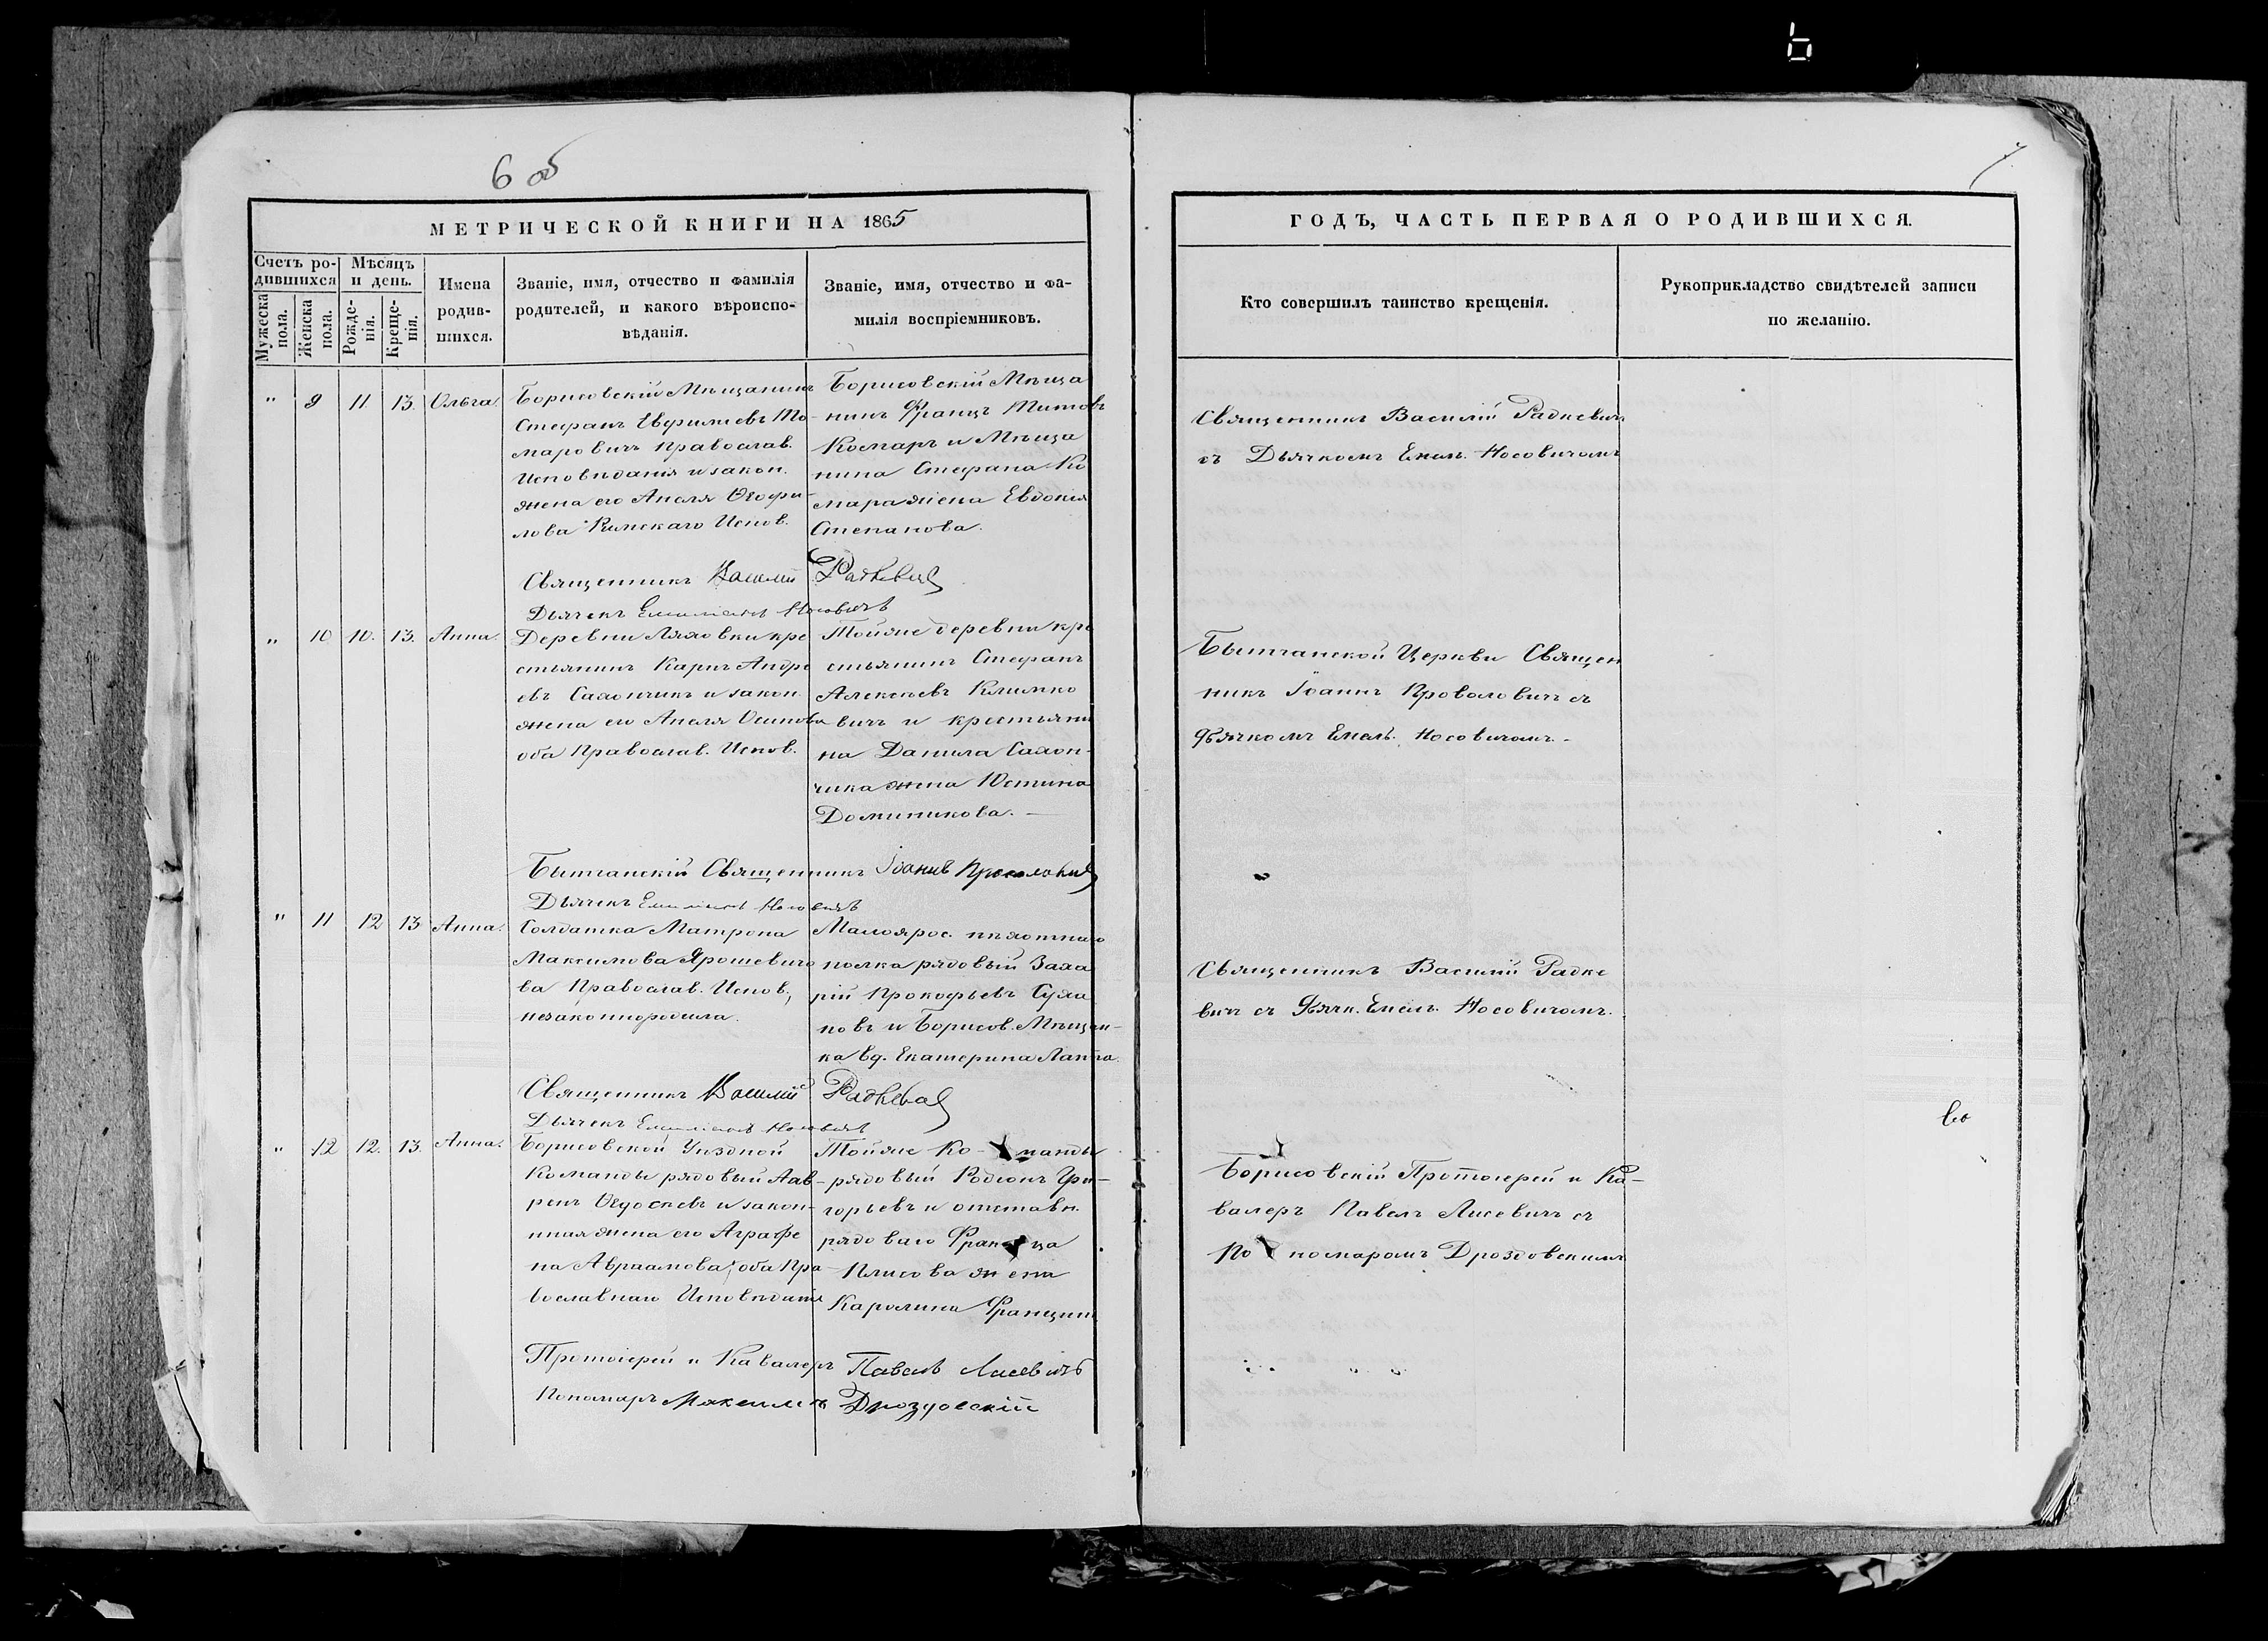 6 об
МЕТРИЧЕСКОЙ КНИГИ НА 1865
Счетъ ро-
дившихся
Мѣсяцъ
и день.
Мужеска
пола.
Женска
пола.
Рожде-
нія.
Креще-
нія.
Имена
родив-
шихся.
Званіе, имя, отчество и фамилія
родителей, и какого вѣроиспо-
вѣданія.
Званіе, имя, отчество и фа-
милія воспріемниковъ.
" 9 11. 13. Ольга.
Борисовскій Мѣщанинъ
Стефанъ Евфиміевъ Ко-
маровичъ Православ.
Исповѣданія и закон.
жена его Анеля Ѳеофи-
лова Римскаго Испов.
Борисовскій Мѣща
нинъ Францъ Титовъ
Комаръ и Мѣща
нина Стефана Ко
мара жена Евдокія
Степанова.
Священникъ Василій Радкевичъ
Дьячекъ Емиліанъ Носовичъ
" 10 10. 13. Анна.
Деревни Ляховки кре
стьянинъ Карпъ Андре
евъ Сахончикъ и закон.
жена его Анеля Осипова
оба Православ. Испов.
Тойже деревни кре
стьянинъ Стефанъ
Алексѣевъ Климко
вичъ и крестьяни
на Данила Сахон-
чика жена Юстина
Доминикова. —
Бытчанскій Священникъ Іоаннъ Проволовичъ
Дьячекъ Емиліанъ Носовичъ
" 11 12 13 Анна.
Солдатка Матрона
Максимова Ярошевичо
ва Православ. Испов.,
незаконнородила.
Малоярос. пѣхотнаго
полка рядовый Заха
рій Прокофьевъ Суха
новъ и Борисов. Мѣщан-
ка вд. Екатерина Лапко.
Священникъ Василій Радкевичъ
Дьячекъ Емиліанъ Носовичъ
" 12 12. 13. Анна.
Борисовской Уѣздной
Команды рядовый Лав-
ренъ Ѳедосѣевъ и закон-
ная жена его Аграфе
на Авраамова, оба Пра
вославнаго Исповѣданія
Тойже Ко-манды
рядовый Родіонъ Гри-
горьевъ и отставн.
рядоваго Франца
Плисова жена
Каролина Францини
Протоіерей и Кавалеръ Павелъ Лисевичъ
Пономарь Максимъ Дроздовскій
ГОДЪ, ЧАСТЬ ПЕРВАЯ О РОДИВШИХСЯ.
Кто совершилъ таинство крещенія.
Рукоприкладство свидѣтелей записи
по желанію.
Священникъ Василій Радкевичъ
съ Дьячкомъ Емил. Носовичомъ
Бытчанской Церкви Священ
никъ Іоаннъ Проволовичъ съ
Дьячкомъ Емел. Носовичомъ. -
Священникъ Василій Радке
вичъ съ Дьячк. Емел. Носовичомъ.
Борисовскій Протоіерей и Ка-
валеръ Павелъ Лисевичъ съ
По номаромъ Дроздовскимъ